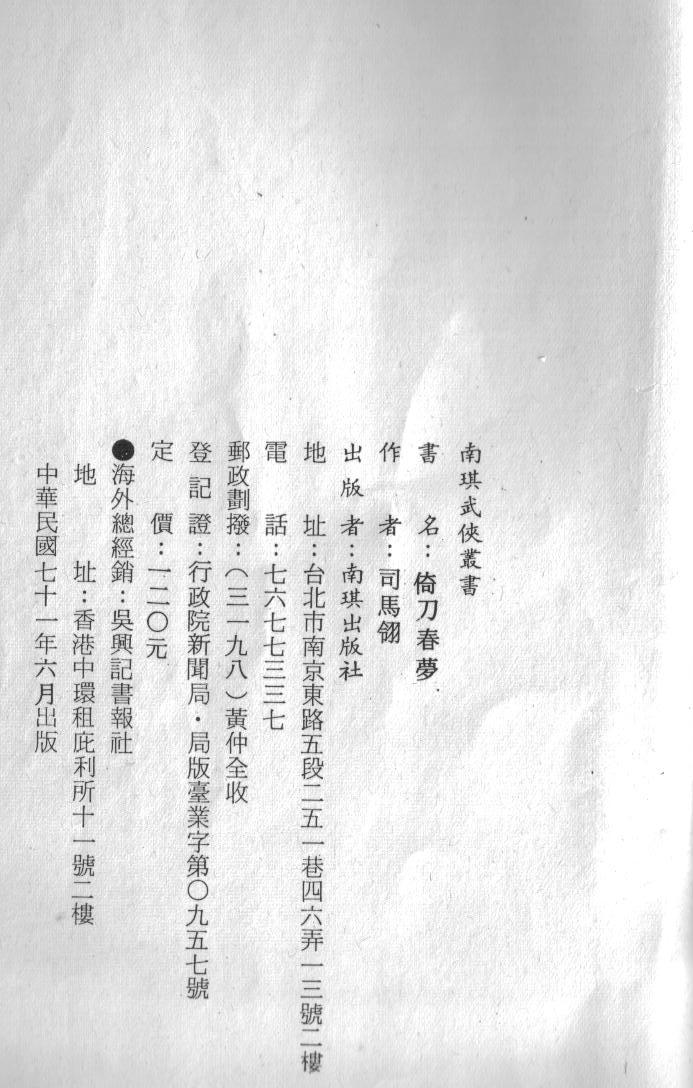 南琪武俠叢書
書　名：倚刀春夢
作　者：司馬翎
出版者：南琪出版社
地　址：台北市南京東路五段二五一巷四六弄一三號二樓
電　話：七六七七三三七
郵政劃撥：（三一九八）黃仲全收
登記證：行政院新聞局・局版臺業字第〇九五七號
定　價：一二〇元
●海外總經銷：吳興記書報社
地　址：香港中環租庇利所十一號二樓
中華民國七十一年六月出版